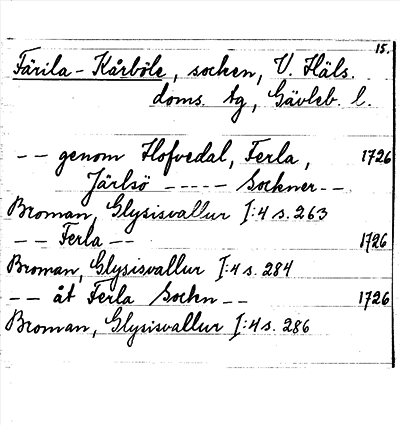 15.
Färila-Kårböle, socken, V. Häls.
doms. tg, Gävleb. l.
-- genom Hofvedal, Ferla, 1726
Järlsö ----- Sockner--
Broman, Glysisvallur I:4 s. 263
-- Ferla -- 1726
Broman, Glysisvallur I:4 s. 284
-- åt Ferla Sockn -- 1726
Broman, Glysisvallur I:4 s. 286